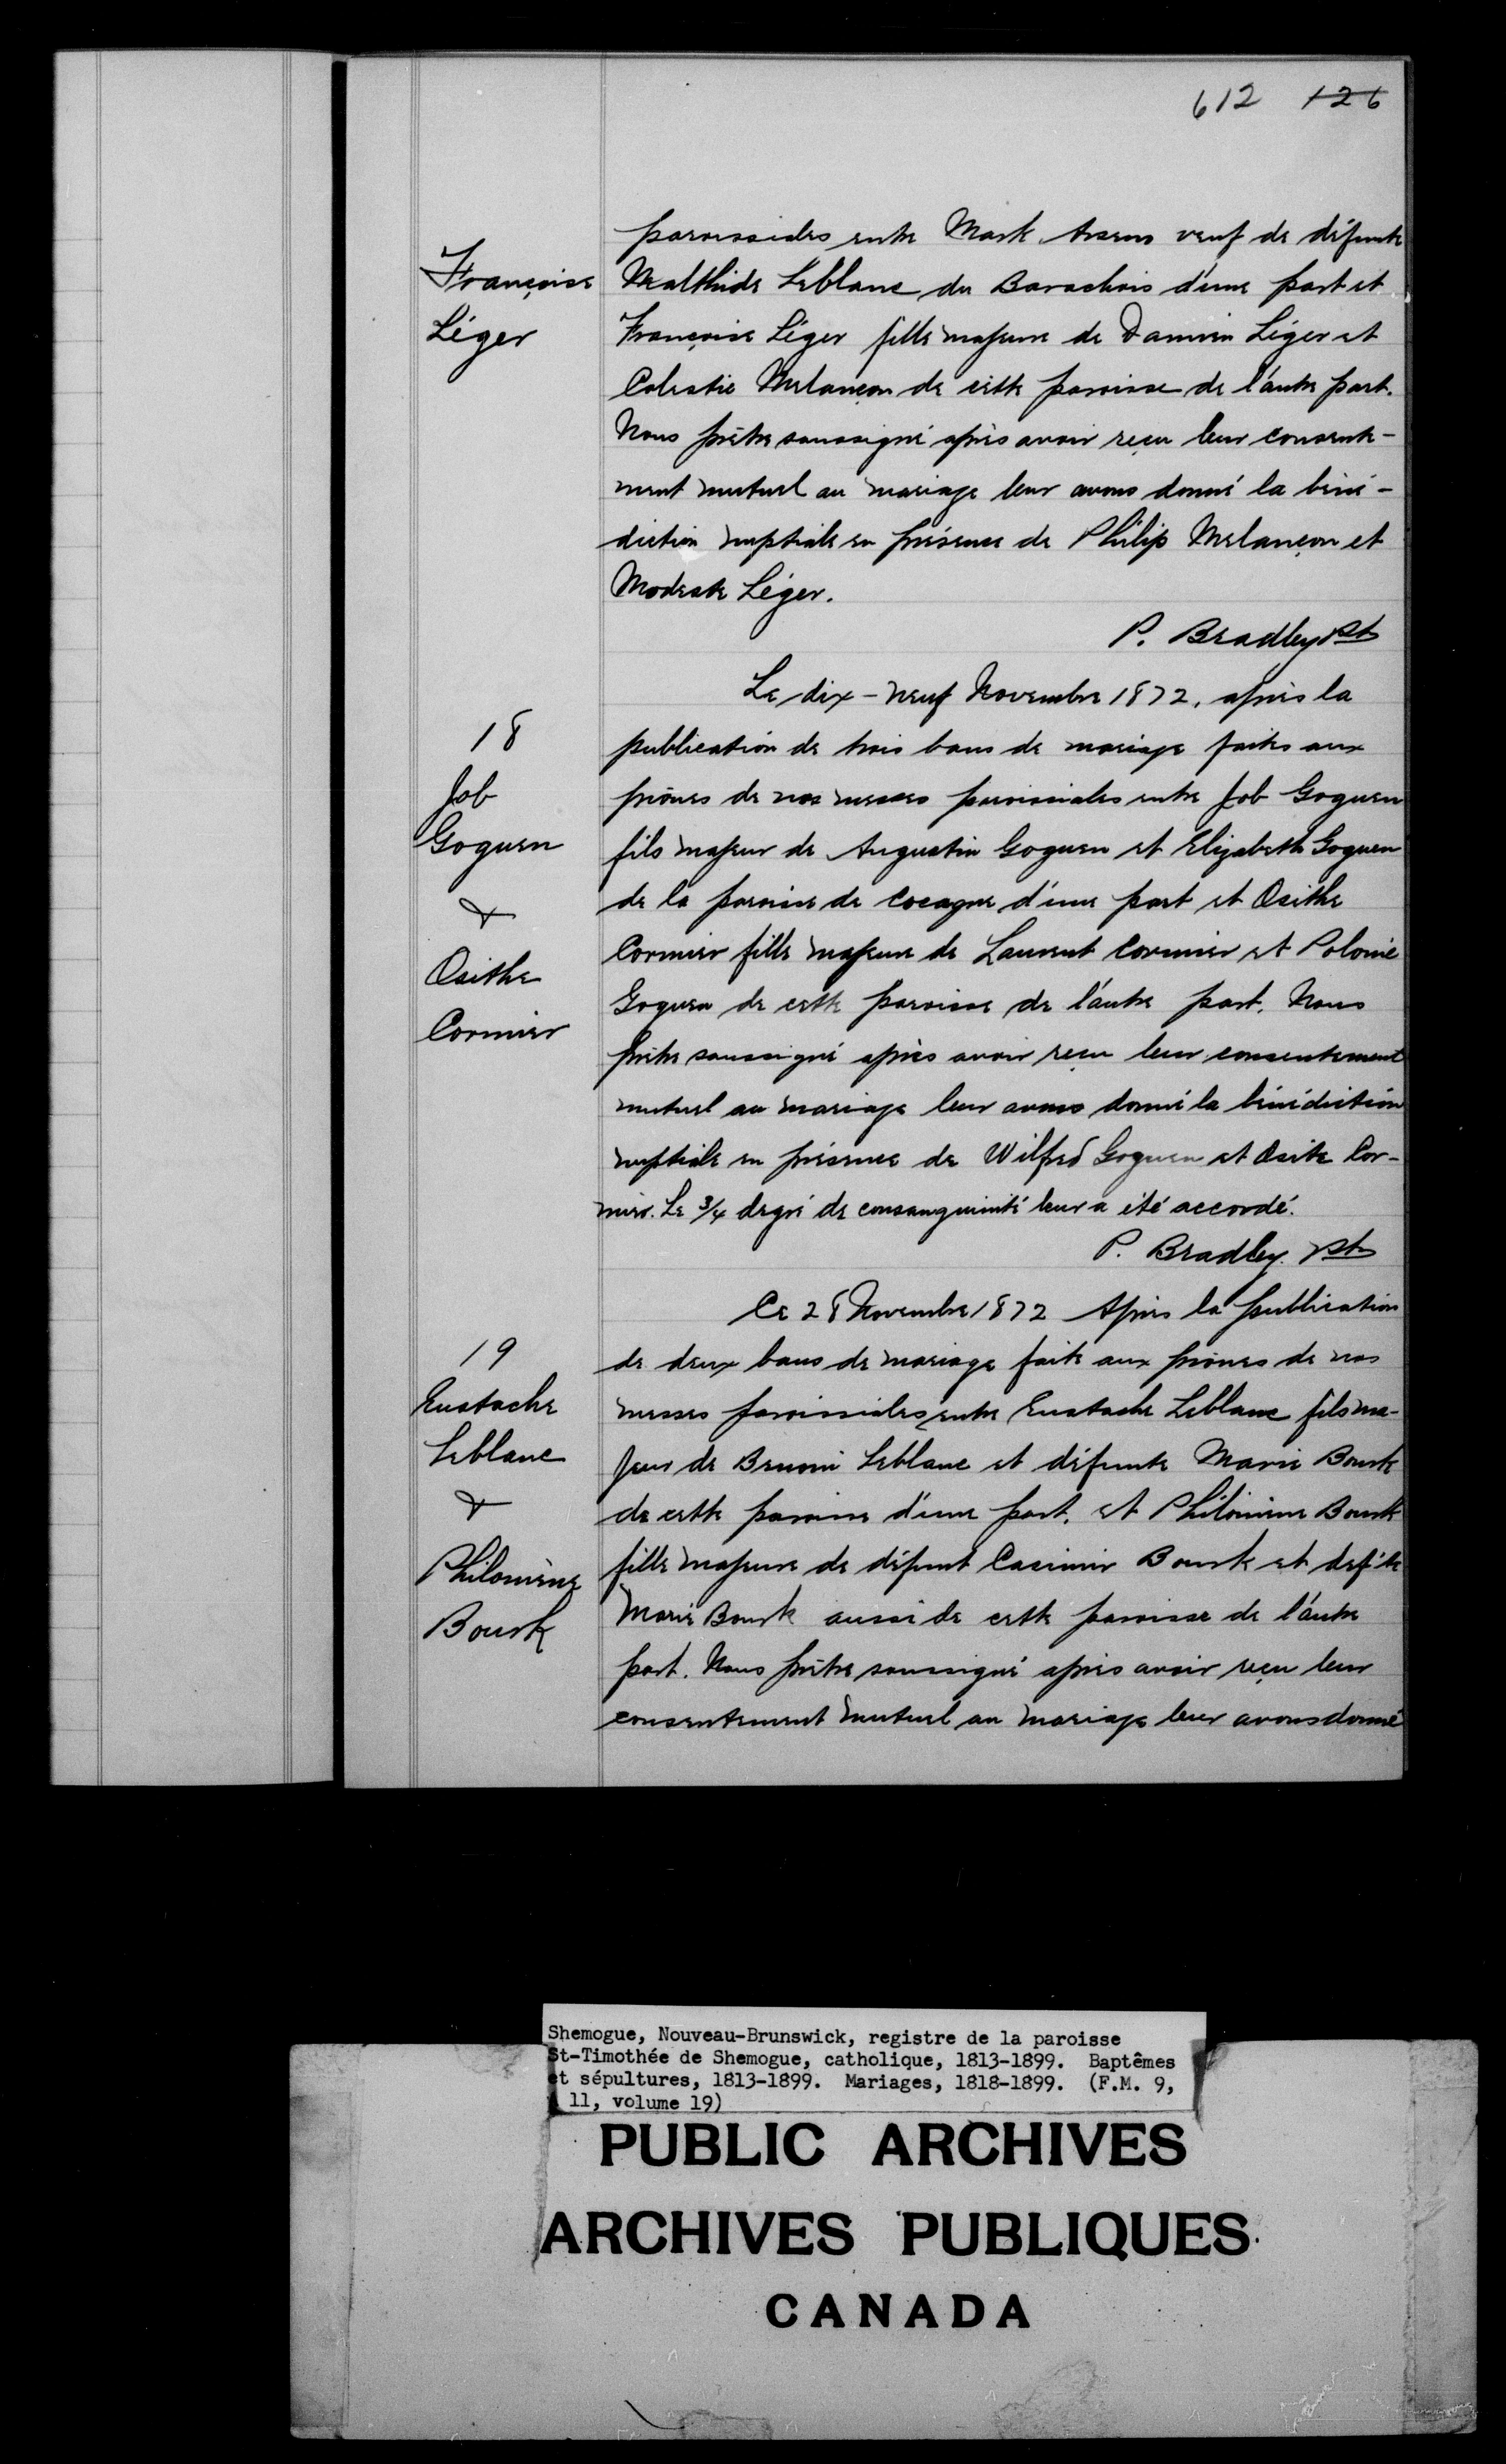 612 126
Françoise
Léger
paroissiales entre Mark Arseno veuf de défunte
Malthide Leblanc du Barachois d'une part et
Françoise Léger fille majeure de Damien Léger et
Celestie Melançon de cette paroisse de l'autre part.
Nous prêtre soussigné après avoir reçu leur consente-
ment mutuel au mariage leur avons donné la béné-
diction nuptiale en présence de Philip Melançon et
Modeste Léger.
P. Bradley Pst
18
Job
Goguen
&
Osithe
Cormier
Le dix-neuf Novembre 1872, après la
publication de trois bans de mariage faites aux
prônes de nos messes paroissiales entre Job Goguen
fils majeur de Augustin Goguen et Elizabeth Goguen
de la paroisse de Cocagne d'une part et Osithe
Cormier fille majeure de Laurent Cormier et Polonie
Goguen de cette paroisse de l'autre part. Nous
prêtre soussigné après avoir reçu leur consentement
mutuel au mariage leur avons donné la bénédiction
nuptiale en présence de Wilfred Goguen et Osite Cor-
mier. Le 3/4 degré de consanguinité leur a été accordé.
P. Bradley Pst
19
Eustache
Leblanc
&
Philomène
Bourk
Ce 28 Novembre 1872 Après la publication
de deux bans de mariage faite aux prônes de nos
messes paroissiales entre Eustache Leblanc fils ma-
jeur de Benoni Leblanc et défunte Marie Bourk
de cette paroisse d'une part, et Philomène Bourk
fille majeure de défunt Casimir Bourk et def.te
Marie Bourk aussi de cette paroisse de l'autre
part. Nous prêtre soussigné après avoir reçu leur
consentement mutuel au mariage leur avons donné
Shemogue, Nouveau-Brunswick, registre de la paroisse
St-Timothée de Shemogue, catholique, 1813-1899. Baptêmes
et sépultures, 1813-1899. Mariages, 1818-1899. (F.M. 9,
11, volume 19)
PUBLIC ARCHIVES
ARCHIVES PUBLIQUES
CANADA